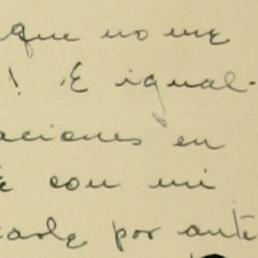 que no me
! E igual-
aciones en
con mi
arle por ante